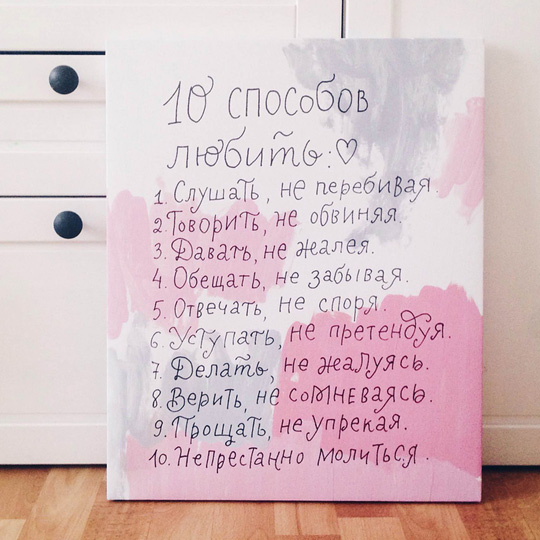 10 способов
любить:♡
1. Слушать, не перебивая.
2. Говорить, не обвиняя.
3. Давать, не жалея.
4. Обещать, не забывая.
5. Отвечать, не споря.
6. Уступать, не претендуя.
7. Делать, не жалуясь.
8. Верить, не сомневаясь.
9. Прощать, не упрекая.
10. Непрестанно молиться.